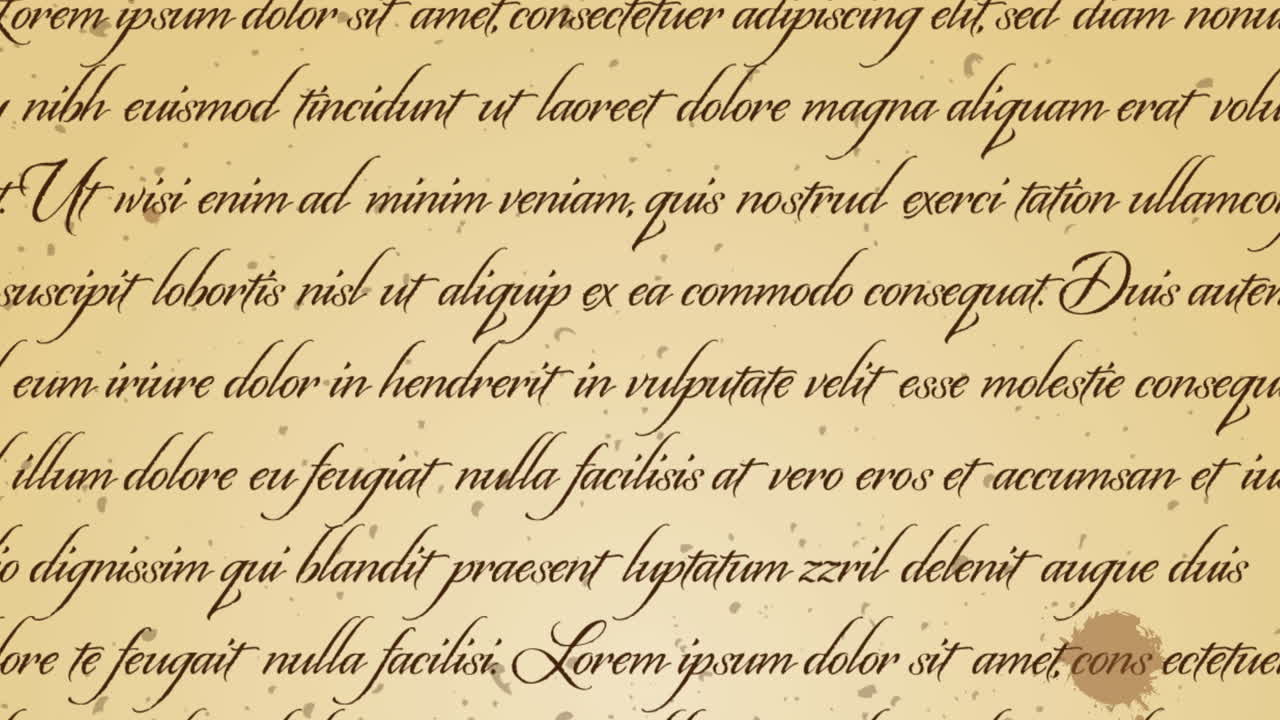 Lorem ipsum dolor sit amet, consectetuer adipiscing elit, sed diam nonu
nibh euismod tincidunt ut laoreet dolore magna aliquam erat volu
t. Ut wisi enim ad minim veniam, quis nostrud exerci tation ullamco
suscipit lobortis nisl ut aliquip ex ea commodo consequat. Duis autem
eum iriure dolor in hendrerit in vulputate velit esse molestie consequ
illum dolore eu feugiat nulla facilisis at vero eros et accumsan et iu
io dignissim qui blandit praesent luptatum zzril delenit augue duis
lore te feugait nulla facilisi. Lorem ipsum dolor sit amet, cons ectetuer